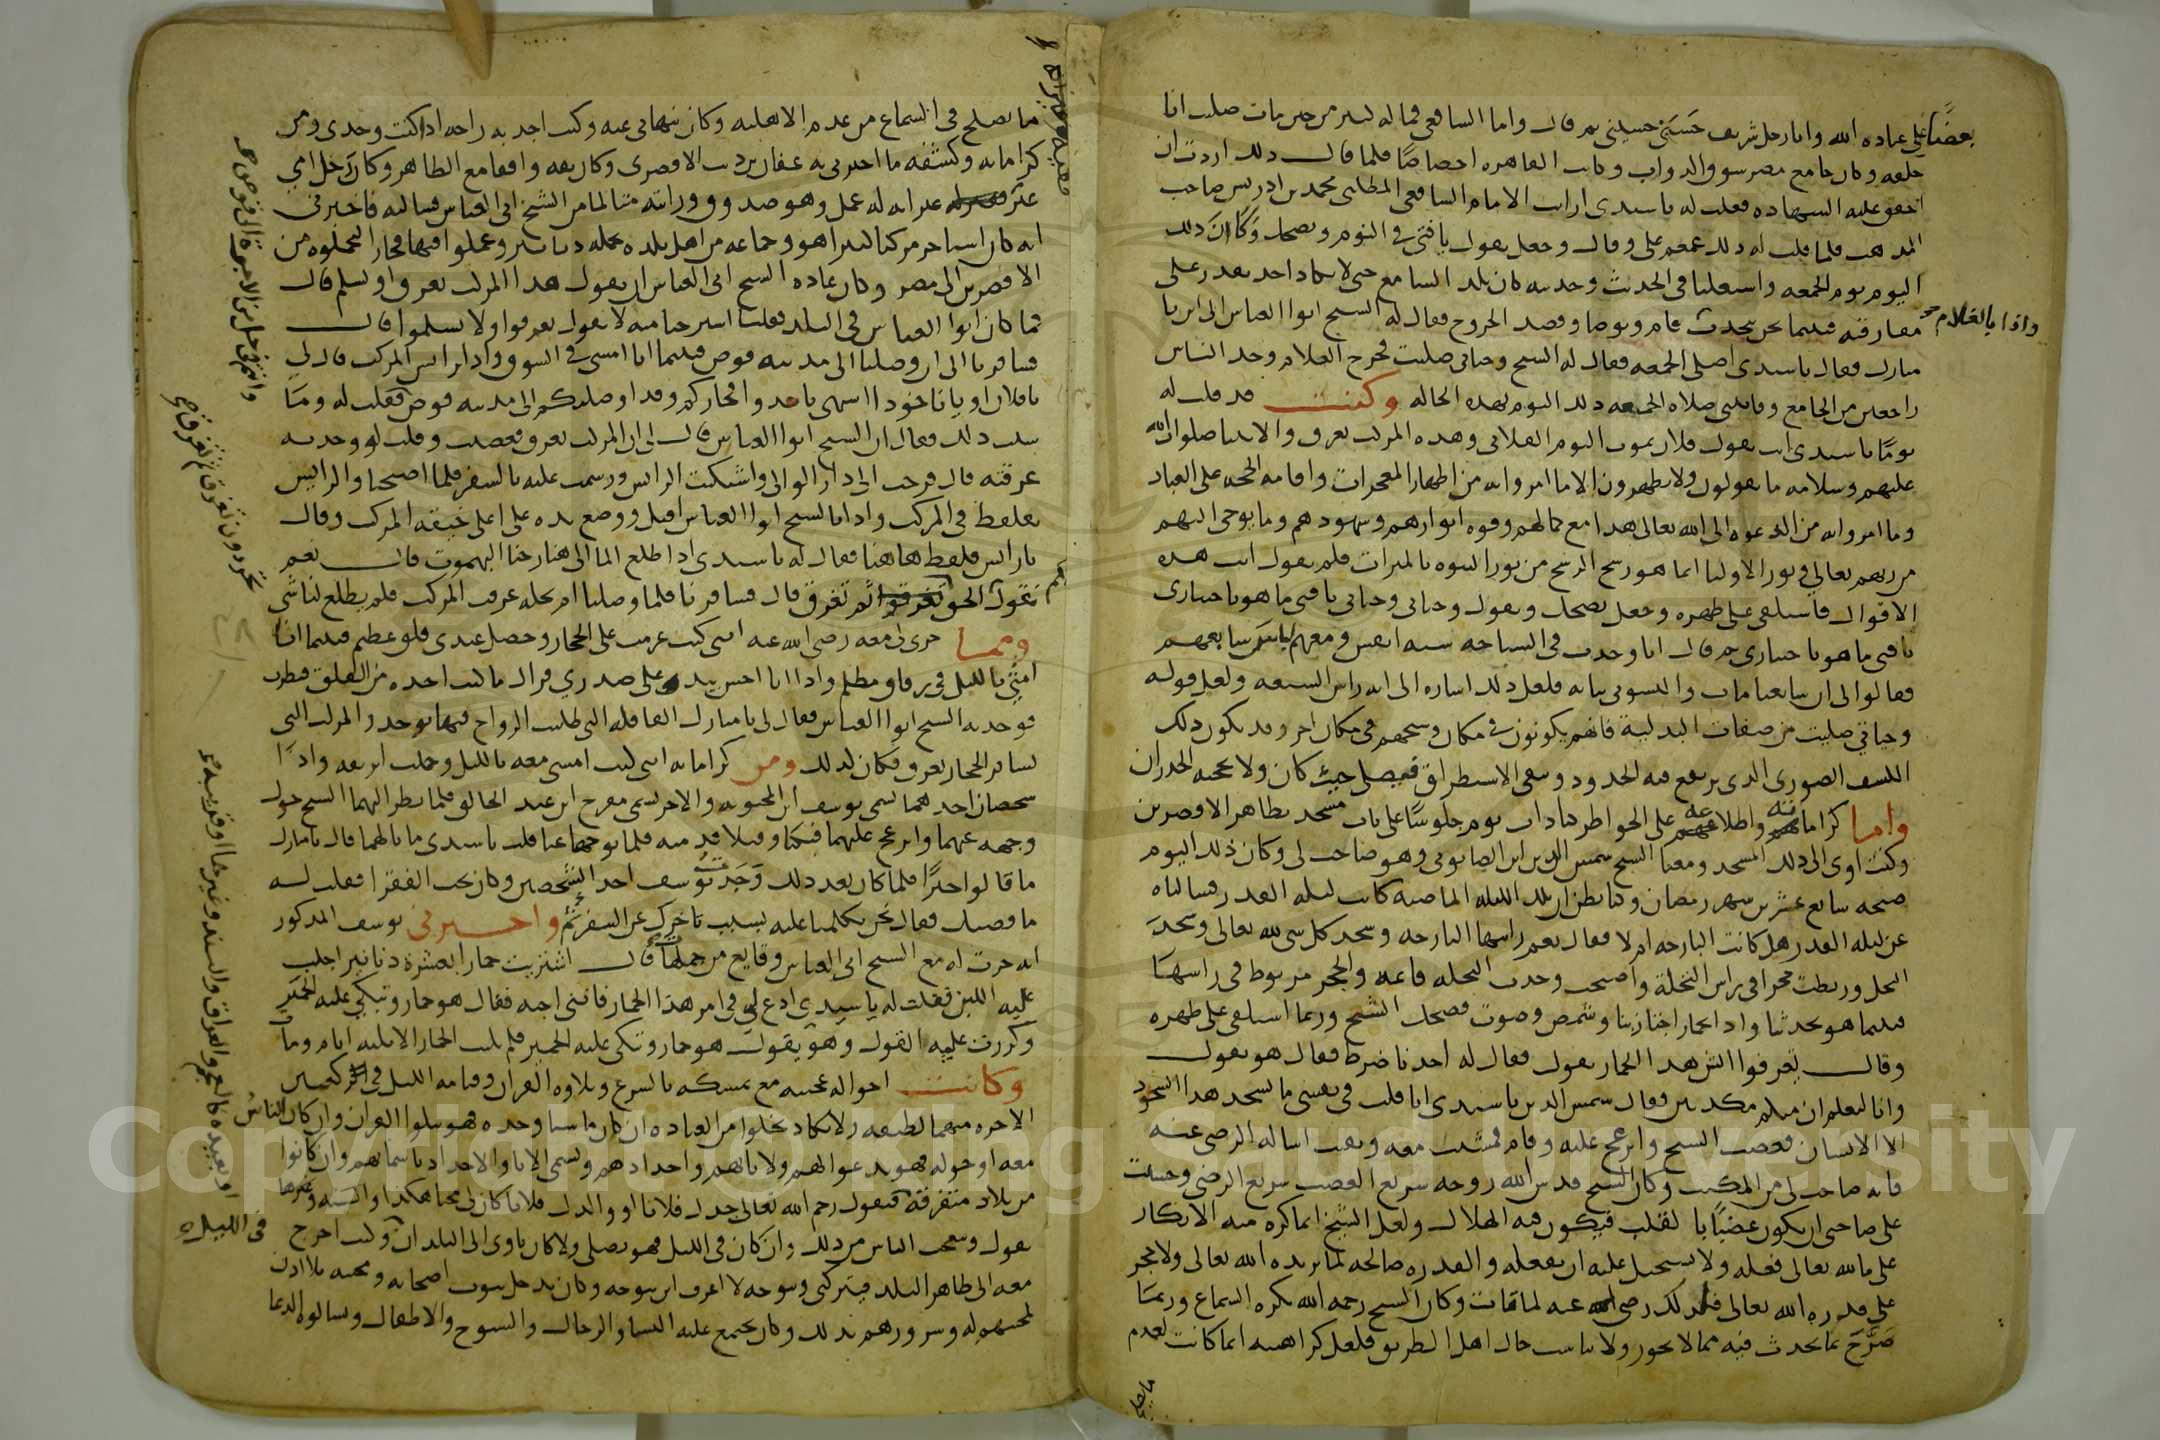 بعضا على عباده الله وانا رجل شريف حسني حسيني ثم قال واما الشافعي فما له ليد من حين مات صليت انا
خلفه وكان جامع مصر سوق الدواب وكانت القاهره اخصاصا فلما قال ذلك اردت ان
احقق عليه الشهاده فقلت له يا سيدي ارايت الامام الشافعي المطلبي محمد بن ادريس صاحب
المذهب فلما قلت له ذلك غمغم علي وقال وجعل يقول يا فتى في النوم ويضحك وكان ذلك
اليوم يوم الجمعه واشتغلنا في الحديث وحديثه كان يلذ السامع حتى لا يكاد احد يقدر على
مفارقته فبينما نحن نتحدث قام وتوضا وقصد الخروج فقال له الشيخ ابو العباس الى اين يا
واذا بالغلام
مبارك فقال يا سيدي اصلي الجمعه فقال له الشيخ وحياتي صليت فخرج الغلام وجد الناس
راجعين من الجامع وفاتتني صلاه الجمعه ذلك اليوم بهذه الحاله وكنت قد قلت له
يوما يا سيدي انت تقول فلان يموت اليوم الفلاني وهذه المركب تغرق والانبيا صلوات الله
عليهم وسلامه ما يقولون ولا يظهرون الا ما امروا به من اظهار المعجزات واقامه الحجه على العباد
وما امروا به من الدعوه الى الله تعالى هذا مع كمالهم وقوه انوارهم وشهودهم وما يوحى اليهم
من ربهم تعالى ونور الاوليا انما هو رشح الرشح من نور النبوه بالميراث فلم تقول انت هذه
الاقوال فاستلقى على ظهره وجعل يضحك ويقول وحياتي وحياتي يا فتى ما هو باختياري
يا فتى ما هو باختياري ثم قال انا وجدت في السياحه سته انفس ومعهم
فقالوا لي ان سابعنا مات
وحياتي صليت من صفات البدلية فانهم يكونون في مكان وشبحهم في مكان اخر وقد يكون ذلك
الكشف الصوري الذي يرتفع فيه الحدود ويبقى الاستطراق فيصلي حيث كان ولا يحجبه الجدران
واما كراماته واطلاعه على الخواطر فذات يوم جلوسا على باب مسجد بظاهر الاقصرين
وكنت اوي الى ذلك المسجد ومعنا الشيخ شمس الدين ابن الصابوني وهو صاحب لي وكان ذلك اليوم
صبحه سابع عشرين شهر رمضان وكنا نظن ان تلك الليله الماضيه كانت ليله القدر فسالناه
عن ليله القدر هل كانت البارحه ام لا فقال نعم رايتها البارحه وسجد كل شي لله تعالى وسجد
النخل وربطت حجرا في راس النخلة واصبحت وجدت النخله قايمه والحجر مربوط في راسها
فبينما هو يحدثنا واذا بحمار اجتاز بنا وشمص وصوت فضحك الشيخ وربما استلقى على ظهره
وقال تعرفوا ايش هذا الحمار يقول فقال له احدنا ضرط فقال هو يقول
وانا لنعلم ان منكم مكذبين وقال شمس الدين يا سيدي انا قلت في نفسي ما يسجد هذا السجود
الا الانسان فغضب الشيخ وانزعج عليه وقام فمشيت معه وبقيت اساله الرضى عنه
فانه صاحب لي من المكتب وكان الشيخ قدس الله روحه سريع الغضب سريع الرضى وخشيت
على صاحبي ان يكون غضبا بالقلب فيكون فيه الهلاك ولعل الشيخ انما كره منه الانكار
على ما لله تعالى فعله ولا يستحيل عليه ان يفعله والقدره صالحه لما يريده الله تعالى ولا محجر
على قدره الله تعالى فلذلك رضي الله عنه لما تاب وكان الشيخ رحمه الله يكره السماع وربما
صرح بما يحدث فيه مما لا يجوز ولا يناسب حال اهل الطريق فلعل كراهيته انما كانت لعدم
ما يصلح
ما يصلح في السماع من عدم الاهليه وكان ينهاني عنه وكنت اجد به راحه اذا كنت وحدي ومن
كراماته وكشفه ما اخبرني به عفان بن الاقصري وكان يقف واقفا مع الظاهر وكان رجل امي
غير انه له عمل وهو صدوق ورايته متالما من الشيخ ابي العباس فسالته فاخبرني
انه كان استاجر مركبا كبيرا هو وجماعه من اهل بلده بجمله دنانير وعملوا فيها فخارا ليحملوه من
الاقصرين الى مصر وكان عاده الشيخ ابي العباس ان يقول هذا المركب تغرق او تسلم قال
فما كان ابو العباس في البلد فقلت استرحنا منه لا يقول تغرقوا ولا تسلموا قال
فسافرنا الى ان وصلنا الى مدينه قوص فبينما انا امشي في السوق واذا برايس المركب قال لي
يا فلان او يا ناخودا انتهى يا خذوا فخاركم وقد اوصلتكم الى مدينه قوص فقلت له وما
سبب ذلك فقال ان الشيخ ابو العباس قال لي ان المركب تغرق فغضبت وقلت لو وجدته
عرفته قال فرحت الى دار الوالي واشتكيت الرايس ورسمت عليه بالسفر فلما اصبحنا والرايس
يقلفط في المركب واذا بالشيخ ابو العباس اقبل ووضع يده على اعلى خيفه المركب وقال
يا رايس قلفط هاهنا فقال له يا سيدي اذا طلع الما الى هنا رحنا البهموت قال نعم
كم نقول الحق ثم تغرق قال فسافرنا فلما وصلنا ام نخله غرقت المركب فلم يطلع لنا شي
ومما جرى لي معه رضي الله عنه انني كنت عزمت على الحجاز وحصل عندي قلق عظيم فبينما انا
امشي بالليل في زقاق مظلم واذا انا احس بيد على صدري فزال ما كنت اجده من القلق فنظرت
فوجدته الشيخ ابو العباس فقال لي يا مبارك القافله التي طلبت الرواح فيها تؤخذ والمركب التي
تسافر الحجاز تغرق فكان كذلك ومن كراماته انني كنت امشي معه بالليل وحملت ابريقه واذا
شخصان احدهما يسمى يوسف ابن المحتويه والاخر يسمى مفرج ابن عبد الخالق فلما نظر اليهما الشيخ حول
وجهه عنهما وانزعج عليهما فبكيا وقبلا قدميه فلما توجها عنا قلت يا سيدي ما بالهما قال يا مبارك
ما قالوا خيرا فلما كان بعد ذلك وجدت يوسف احد الشخصين وكان يحب الفقرا فقلت له
ما قصتك فقال نحن تكلمنا عليه بسبب تاخرك عن السفر ثم واخبرني يوسف المذكور
انه جرت له مع الشيخ ابي العباس وقايع من جملتها قال اشتريت حمارا بعشرة دنانير اجلب
عليه اللبن فقلت له يا سيدي ادع لي في امر هذا الحمار فانني احبه فقال هو حمار وتبكي عليه الحمير
وكررت عليه القول وهو يقول هو حمار وتبكي عليه الحمير فلم يلبث الحمار الا ثلثه ايام ومات
وكانت احواله عجيبه مع تمسكه بالشرع وتلاوه القران وقيامه الليل في اكثر كعتين
الاخره منهما لطيفه ولا يكاد يخلوا من العباده ان كان ماشيا وحده فهو يتلوا القران وان كان الناس
معه او حوله فهو يدعوا لهم ولابايهم واجدادهم ويسمي الابا والاجداد باسمايهم وان كانوا
من بلاد متفرقة فيقول رحم الله تعالى جدك فلانا او والدك فلانا كان لي محبا هكذا والسنه وغيرها
يقول ويتعجب الناس من ذلك وان كان في الليل فهو يصلي ولا كان ياوي الى البلد ان وكنت اخرج
في الليل
معه الى ظاهر البلد فيتركني ويتوجه لا اعرف اين يتوجه وكان يدخل بيوت اصحابه ومحبيه بلا اذن
لمحبتهم له وسرورهم بذلك وكان يجتمع عليه النسا والرجال والشيوخ والاطفال ويسالوه الدعا
Copyright © King Saud University